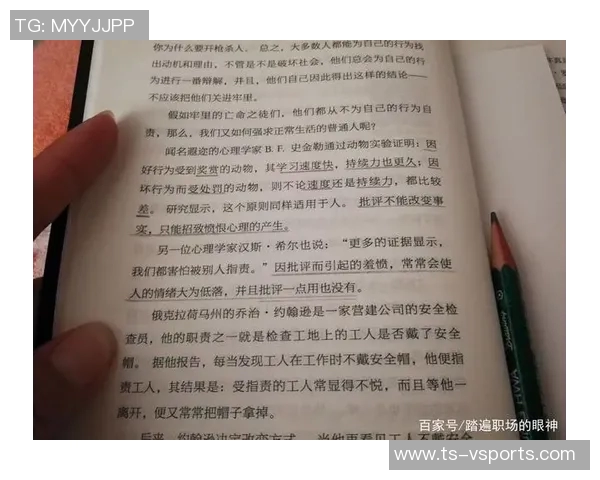 TG: MYYJJPP
你为什么要开枪杀人。总之，大多数人都能为自己的行为找
出动机和理由，不管是不是破坏社会，他们总会为自己的行
为进行一番辩解，并且，他们自己因此得出这样的结论——
不应该把他们关进牢里。
假如牢里的亡命之徒们，他们都从不为自己的行为自
责，那么，我们又如何强求正常生活的普通人呢？
闻名遐迩的心理学家 B. F. 史金勒通过动物实验证明：因
好行为受到奖赏的动物，其学习速度快，持续力也更久；因
坏行为而受处罚的动物，则不论速度还是持续力，都比较
差。研究显示，这个原则同样适用于人。批评不能改变事
实，只能招致愤恨心理的产生。
另一位心理学家汉斯·希尔也说：“更多的证据显示，
我们都害怕被别人指责。”因批评而引起的羞愤，常常会使
人的情绪大为低落，并且批评一点用也没有。
俄克拉荷马州的乔治·约翰逊是一家营建公司的安全检
查员，他的职责之一就是检查工地上的工人是否戴了安全
帽。据他报告，每当发现工人在工作时不戴安全帽，他便指
责工人，其结果是：受指责的工人常显得不悦，而且等他一
离开，便又常常把帽子拿掉。
后来，约翰逊决定改变方式。当他再看见工人不戴安全
百家号/踏遍职场的眼神
www.ts-vsports.com